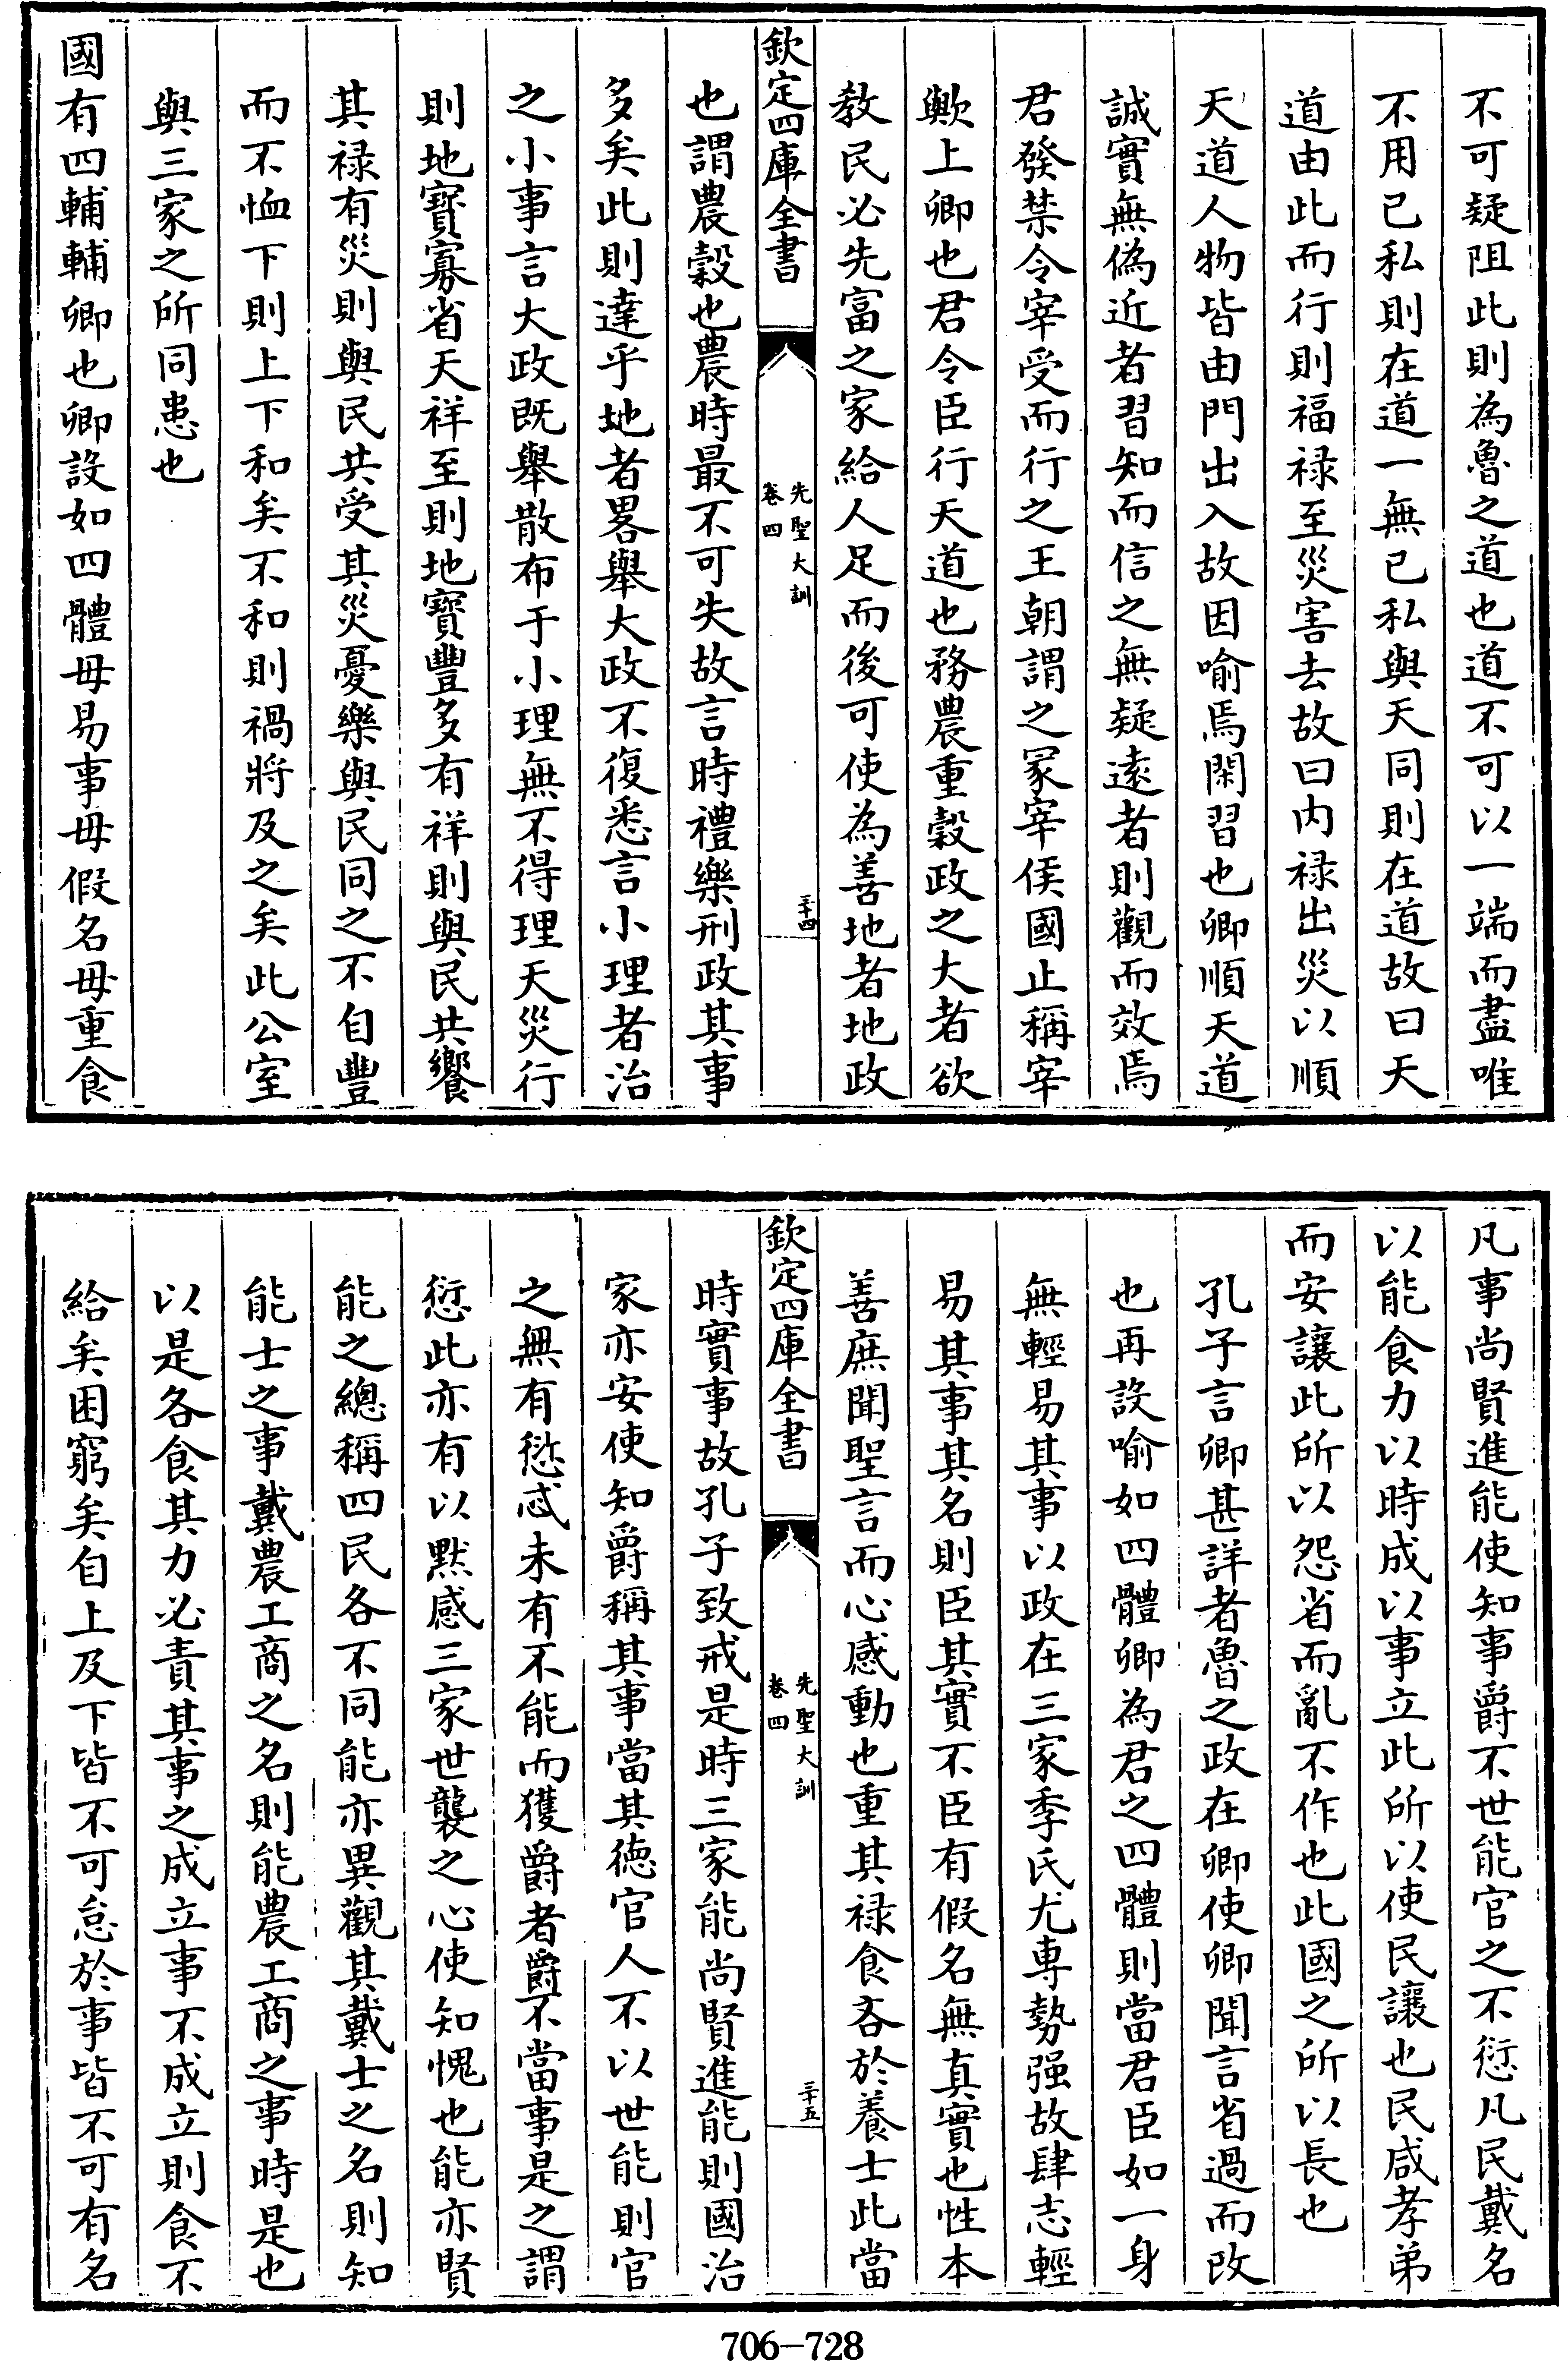 不可疑阻此則為魯之道也道不可以一端而盡唯
不用已私則在道一無已私與天同則在道故曰天
道由此而行則福禄至災害去故曰内禄出災以順
天道人物皆由門出入故因喻焉閑習也卿順天道
誠實無偽近者習知而信之無疑遠者則觀而效焉
君發禁令宰受而行之王朝謂之冢宰侯國止稱宰
歟上卿也君令臣行天道也務農重穀政之大者欲
教民必先富之家給人足而後可使為善地者地政
欽定四庫全書
先聖大訓
卷四
三十四
也謂農穀也農時最不可失故言時禮樂刑政其事
多矣此則達乎地者畧舉大政不復悉言小理者治
之小事言大政既舉散布于小理無不得理天災行
則地寶寡省天祥至則地寶豐多有祥則與民共饗
其禄有災則與民共受其災憂樂與民同之不自豐
而不恤下則上下和矣不和則禍將及之矣此公室
與三家之所同患也
國有四輔輔卿也卿設如四體毋易事毋假名毋重食
凡事尚賢進能使知事爵不世能官之不愆凡民戴名
以能食力以時成以事立此所以使民讓也民咸孝弟
而安讓此所以怨省而亂不作也此國之所以長也
孔子言卿甚詳者魯之政在卿使卿聞言省過而改
也再設喻如四體卿為君之四體則當君臣如一身
無輕易其事以政在三家季氏尤專勢强故肆志輕
易其事其名則臣其實不臣有假名無真實也性本
善庶聞聖言而心感動也重其禄食吝於養士此當
欽定四庫全書
先聖大訓
卷四
三十五
時實事故孔子致戒是時三家能尚賢進能則國治
家亦安使知爵稱其事當其德官人不以世能則官
之無有愆忒未有不能而獲爵者爵不當事是之謂
愆此亦有以默感三家世襲之心使知愧也能亦賢
能之總稱四民各不同能亦異觀其戴士之名則知
能士之事戴農工商之名則能農工商之事時是也
以是各食其力必責其事之成立事不成立則食不
給矣困窮矣自上及下皆不可怠於事皆不可有名
706-728